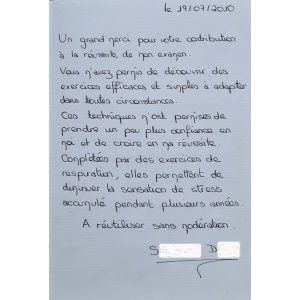 le 19/07/2010
Un grand merci pour votre contribution
à la réussite de mon examen.
Vous m'avez permis de découvrir des
exercices efficaces et simples à adapter
dans toutes circonstances.
Ces techniques m'ont permises de
prendre un peu plus confiance en
moi et de croire en ma réussite.
Complétées par des exercices de
respiration, elles permettent de
diminuer la sensation de stress
accumulé pendant plusieurs années.
A réutiliser sans modération.
S D